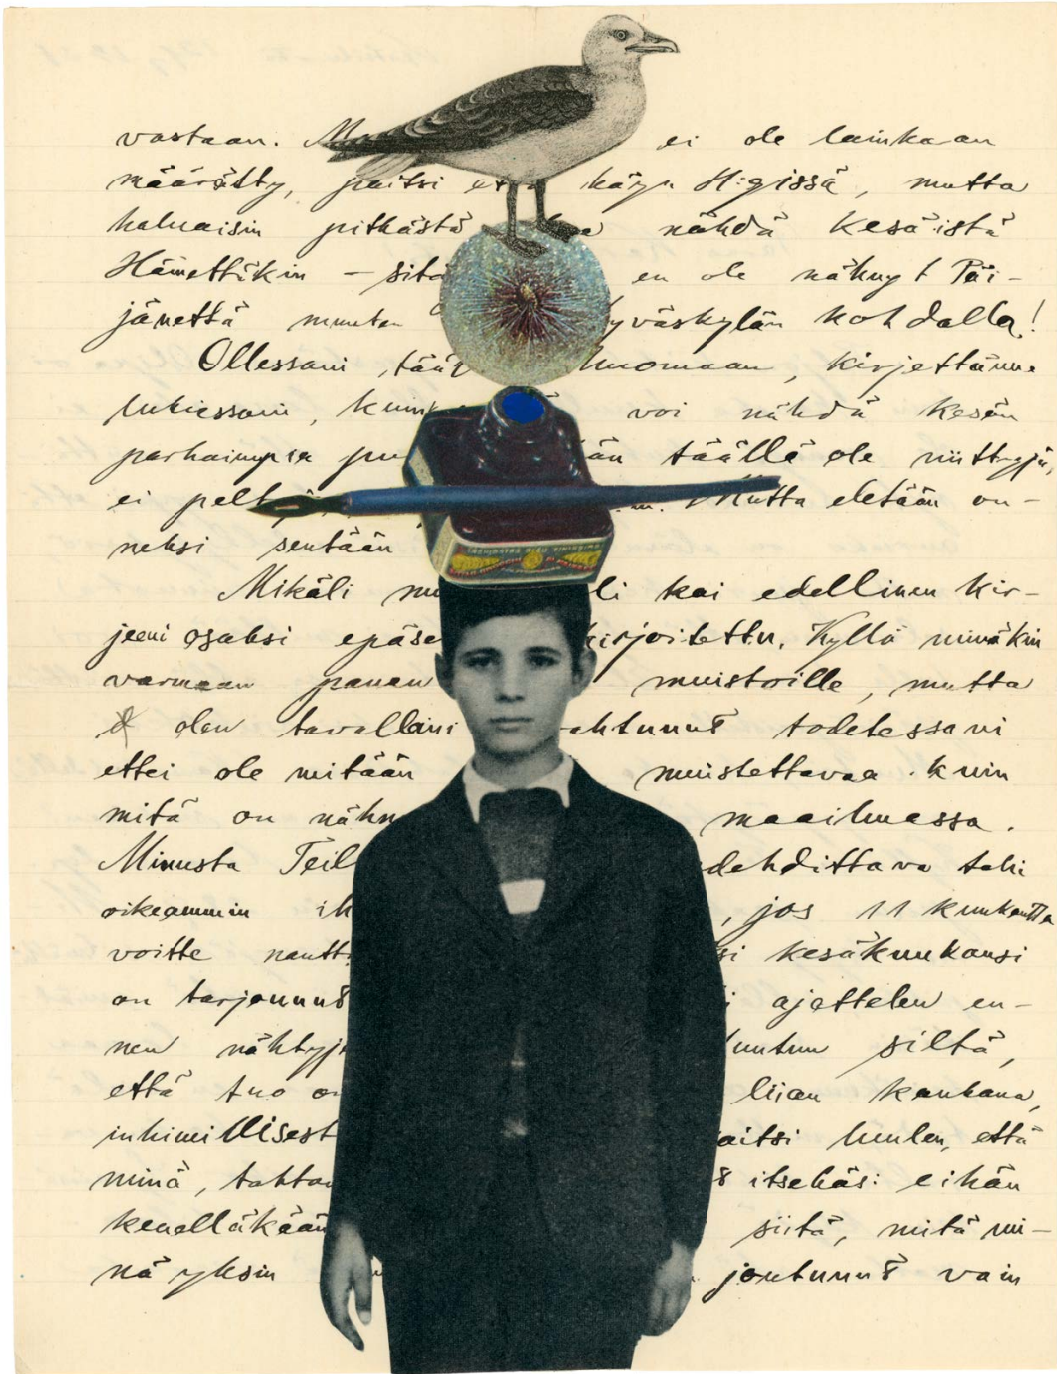 vastaan. ei ole lainkaan
määrätty, paitsi että käyn H:gissä, mutta
haluaisin pitkästä nähdä kesäistä
Hämettäkin – sitä en ole nähnyt Päi-
jänettä muuten yväskylän kohdalla!
Ollessani, tääl huomaan, kirjettänne
lukiessani, kuink voi nähdä kesän
parhaimpia pu än täällä ole niittyjä,
ei pelt Mutta eletään on-
neksi sentään
Mikäli mu li kai edellinen kir-
jeeni osaksi epäse kirjoitettu. Kyllä minäkin
varmaan panen muistoille, mutta
olen tavallani ahtunut todetessani
ettei ole mitään muistettavaa kuin
mitä on nähn maailmassa.
Minusta Teil adehdittava tahi
oikeammin ih , jos 11 kuukautta
voitte nautt si kesäkuukausi
on tarjonnut i ajattelen en-
nen nähtyj untuu siltä,
että tuo on liian kaukana,
inhimillisest aitsi luulen, että
minä, tahto t itsekäs: eihän
kenelläkään siitä, mitä mi-
nä yksin joutunut vain